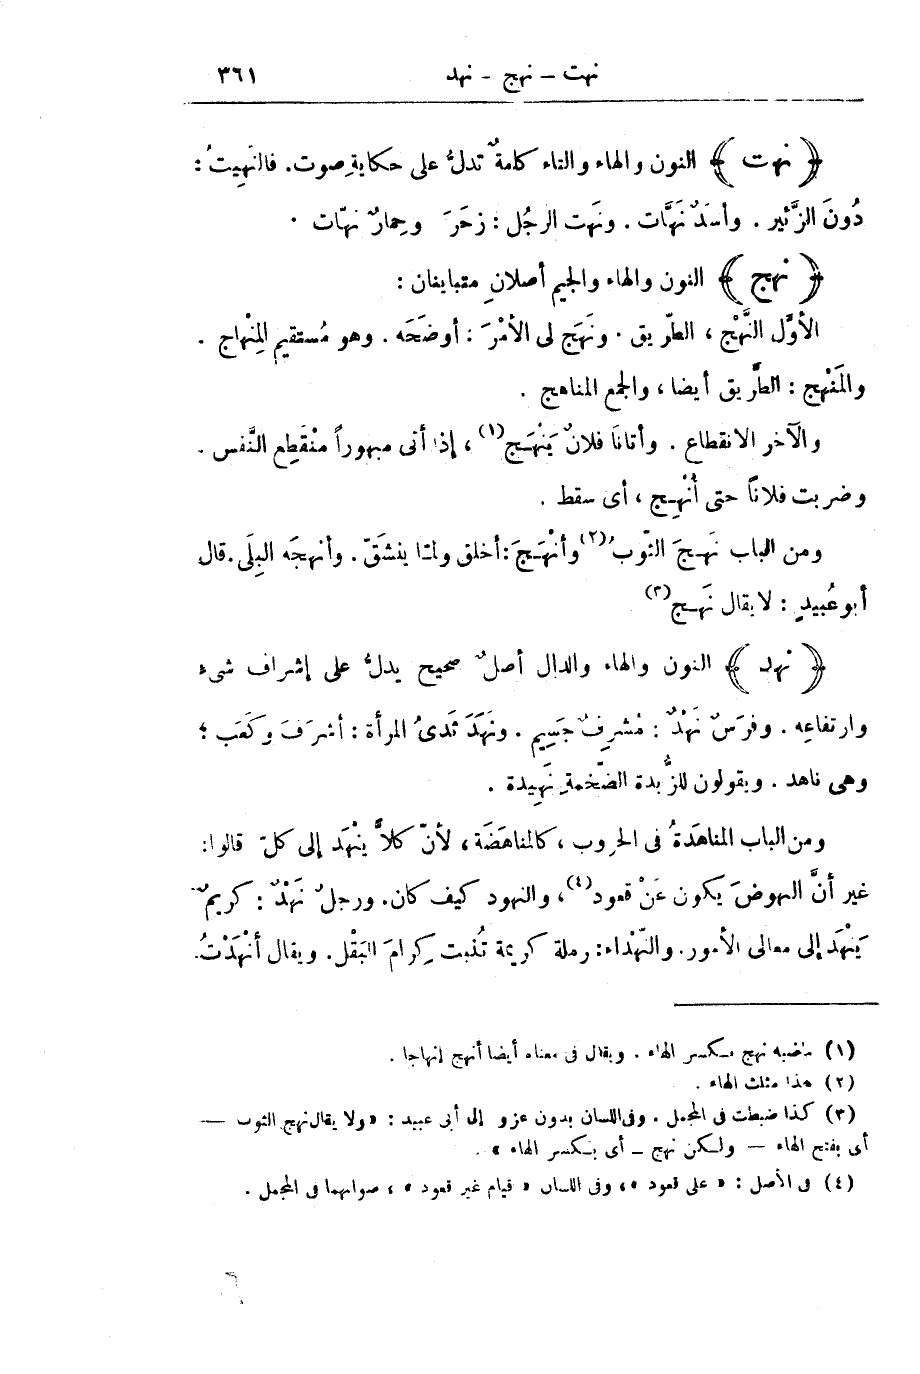 نهت – نهج – نهد ٣٦١
﴿ نهت ﴾ النون والهاء والتاء كلمةٌ تدلُّ على حكايةِ صوت. فالنَهِيتُ :
دُونَ الزَّئير . وأسَدٌ نَهَّات . ونَهَت الرجُل : زحَرَ وحِمارٌ نهّات .
﴿ نهج ﴾ النون والهاء والجيم أصلانِ متباينان :
الأوَّل النَّهْج ، الطّريق . ونَهَج لى الأمْرَ : أوضَحَه . وهو مُستقيم المِنْهاج .
والمَنْهج : الطَّريق أيضا ، والجمع المناهج .
والآخر الانقطاع . وأتانَا فلانٌ يَنْهَج(١) ، إذا أتى مبهوراً منْقَطِع النَّفس .
وضربت فلاناً حتى أُنْهِج ، أى سقط .
ومن الباب نَهَجَ الثّوبُ(٢) وأنْهَجَ : أخلق ولمّا ينشَقّ . وأنهجَه البِلَى. قال
أبو عُبيدٍ : لا يقال نَهَج(٣)
﴿ نهد ﴾ النون والهاء والدال أصلٌ صحيح يدلُّ على إشراف شىء
وارتفاعِه . وفرَسٌ نَهْدٌ : مُشرِفٌ جَسِيم . ونَهَدَ ثَدىُ المرأة : أشرَفَ وكَعَب ؛
وهى ناهد . ويقولون للزُّبدة الضّخمةِ نَهِيدة .
ومن الباب المناهَدَةُ فى الحروب ، كالمناهَضَة ، لأنّ كلاًّ يَنْهَد إلى كلّ قالوا:
غير أنَّ النهوضَ يكون عَنْ قعود(٤)، والنهود كيف كان. ورجلٌ نَهْدٌ : كريمٌ
يَنْهَد إلى معالى الأمور. والنَّهْداء: رملة كريمة تُنبت كِرامَ البَقْل. ويقال أنْهَدْتُ
(١) ماضيه نهج بكسر الهاء . ويقال فى معناه أيضا أنهج إنهاجا .
(٢) هذا مثلث الهاء .
(٣) كذا ضبطت فى المجمل . وفى اللسان بدون عزو إلى أبى عبيد : « ولا يقال نهج الثوب —
أى بفتح الهاء — ولكن نهج – أى بكسر الهاء » .
(٤) فى الأصل : « على قعود »، وفى اللسان « قيام غير قعود » ، صوابهما فى المجمل .